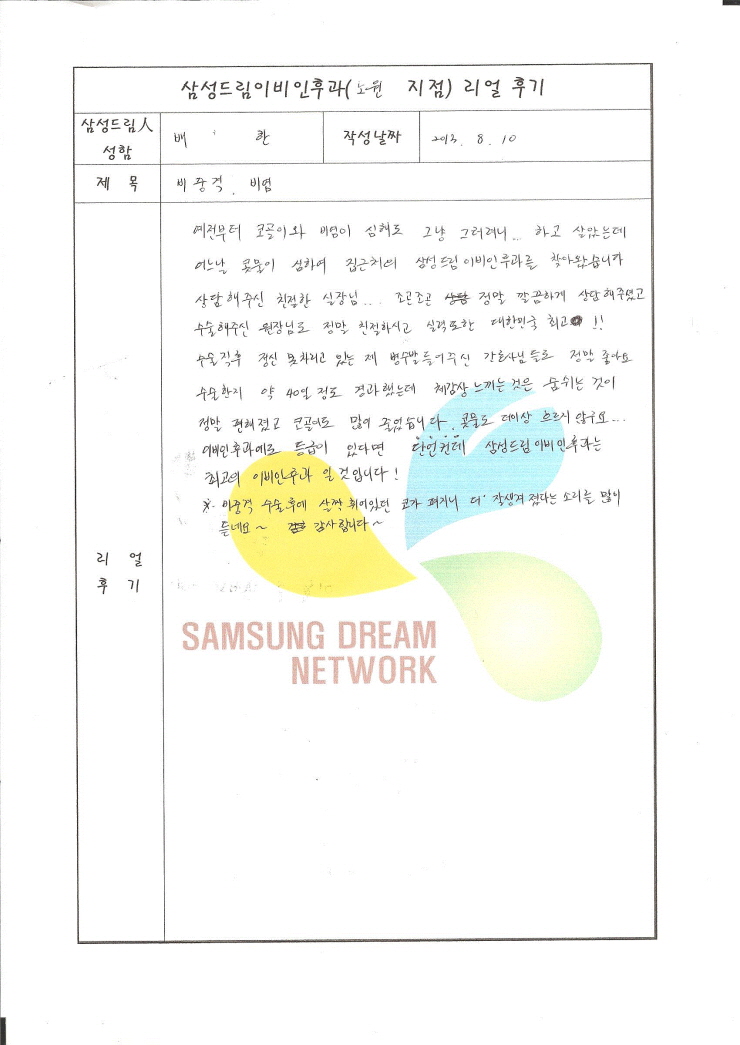 삼성드림이비인후과(노원 지점) 리얼 후기
삼성드림人 성함
배 환
작성날짜
2013. 8. 10
제 목
비중격. 비염
리 얼 후 기
예전부터 코골이와 비염이 심해도 그냥 그러려니... 하고 살았는데
어느날 콧물이 심하여 집근처의 삼성드림이비인후과를 찾아왔습니다
상담해주신 친절한 실장님... 조곤조곤 정말 깔끔하게 상담해주셨고
수술해주신 원장님도 정말 친절하시고 실력또한 대한민국 최고!!
수술직후 정신 못차리고 있는 제 병수발들어주신 간호사님들도 정말 좋아요
수술한지 약 40일 정도 경과했는데 체감상 느끼는 것은 숨쉬는 것이
정말 편해졌고 코골이도 많이 줄었습니다. 콧물도 더이상 흐르지 않구요...
이비인후과에도 등급이 있다면 단언컨데 삼성드림이비인후과는
최고의 이비인후과 일 것입니다!
※. 비중격 수술후에 살짝 휘어있던 코가 펴지니 더 잘생겨 졌다는 소리를 많이
듣네요~ 감사합니다~
SAMSUNG DREAM
NETWORK